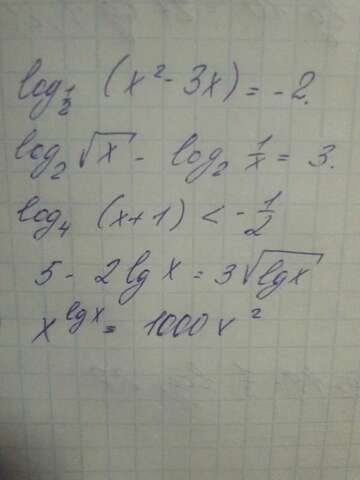 log₁/₂ (x² - 3x) = -2.
log₂ √x - log₂ 1/x = 3.
log₄ (x+1) < -1/2
5 - 2lg x = 3√lgx
x^lgx = 1000x²